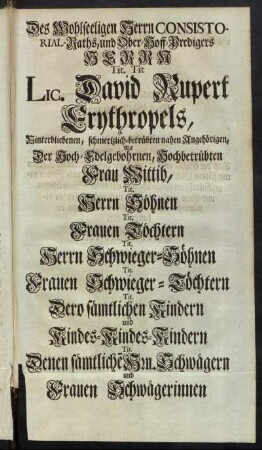 Des Wohlseeligen Herrn CONSISTO-
RIAL-Raths, und Ober-Hoff-Predigers
HERRN
Tit. Tit
LIC. David Rupert
Erythropels,
Hinterbliebenen, schmertzlich-betrübten nahen Angehörigen,
Als
Der Hoch-Edelgebohrnen, Hochbetrübten
Frau Wittib,
Tit.
Herrn Söhnen
Tit.
Frauen Töchtern
Tit.
Herrn Schwieger-Söhnen
Tit.
Frauen Schwieger-Töchtern
Tit.
Dero sämtlichen Kindern
und
Kindes-Kindes-Kindern
Tit.
Denen sämtlichē Hrn. Schwägern
und
Frauen Schwägerinnen